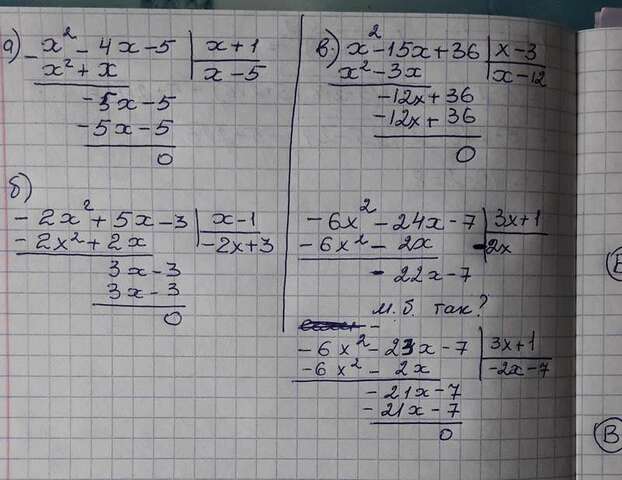 а) x² - 4x - 5 | x + 1
x² + x | x - 5
- 5x - 5
- 5x - 5
0
б)
- 2x² + 5x - 3 | x - 1
- 2x² + 2x | - 2x + 3
3x - 3
3x - 3
0
в) x² - 15x + 36 | x - 3
x² - 3x | x - 12
- 12x + 36
- 12x + 36
0
- 6x² - 24x - 7 | 3x + 1
- 6x² - 2x | - 2x
- 22x - 7
м.б так?
- 6x² - 23x - 7 | 3x + 1
- 6x² - 2x | - 2x - 7
- 21x - 7
- 21x - 7
0
В